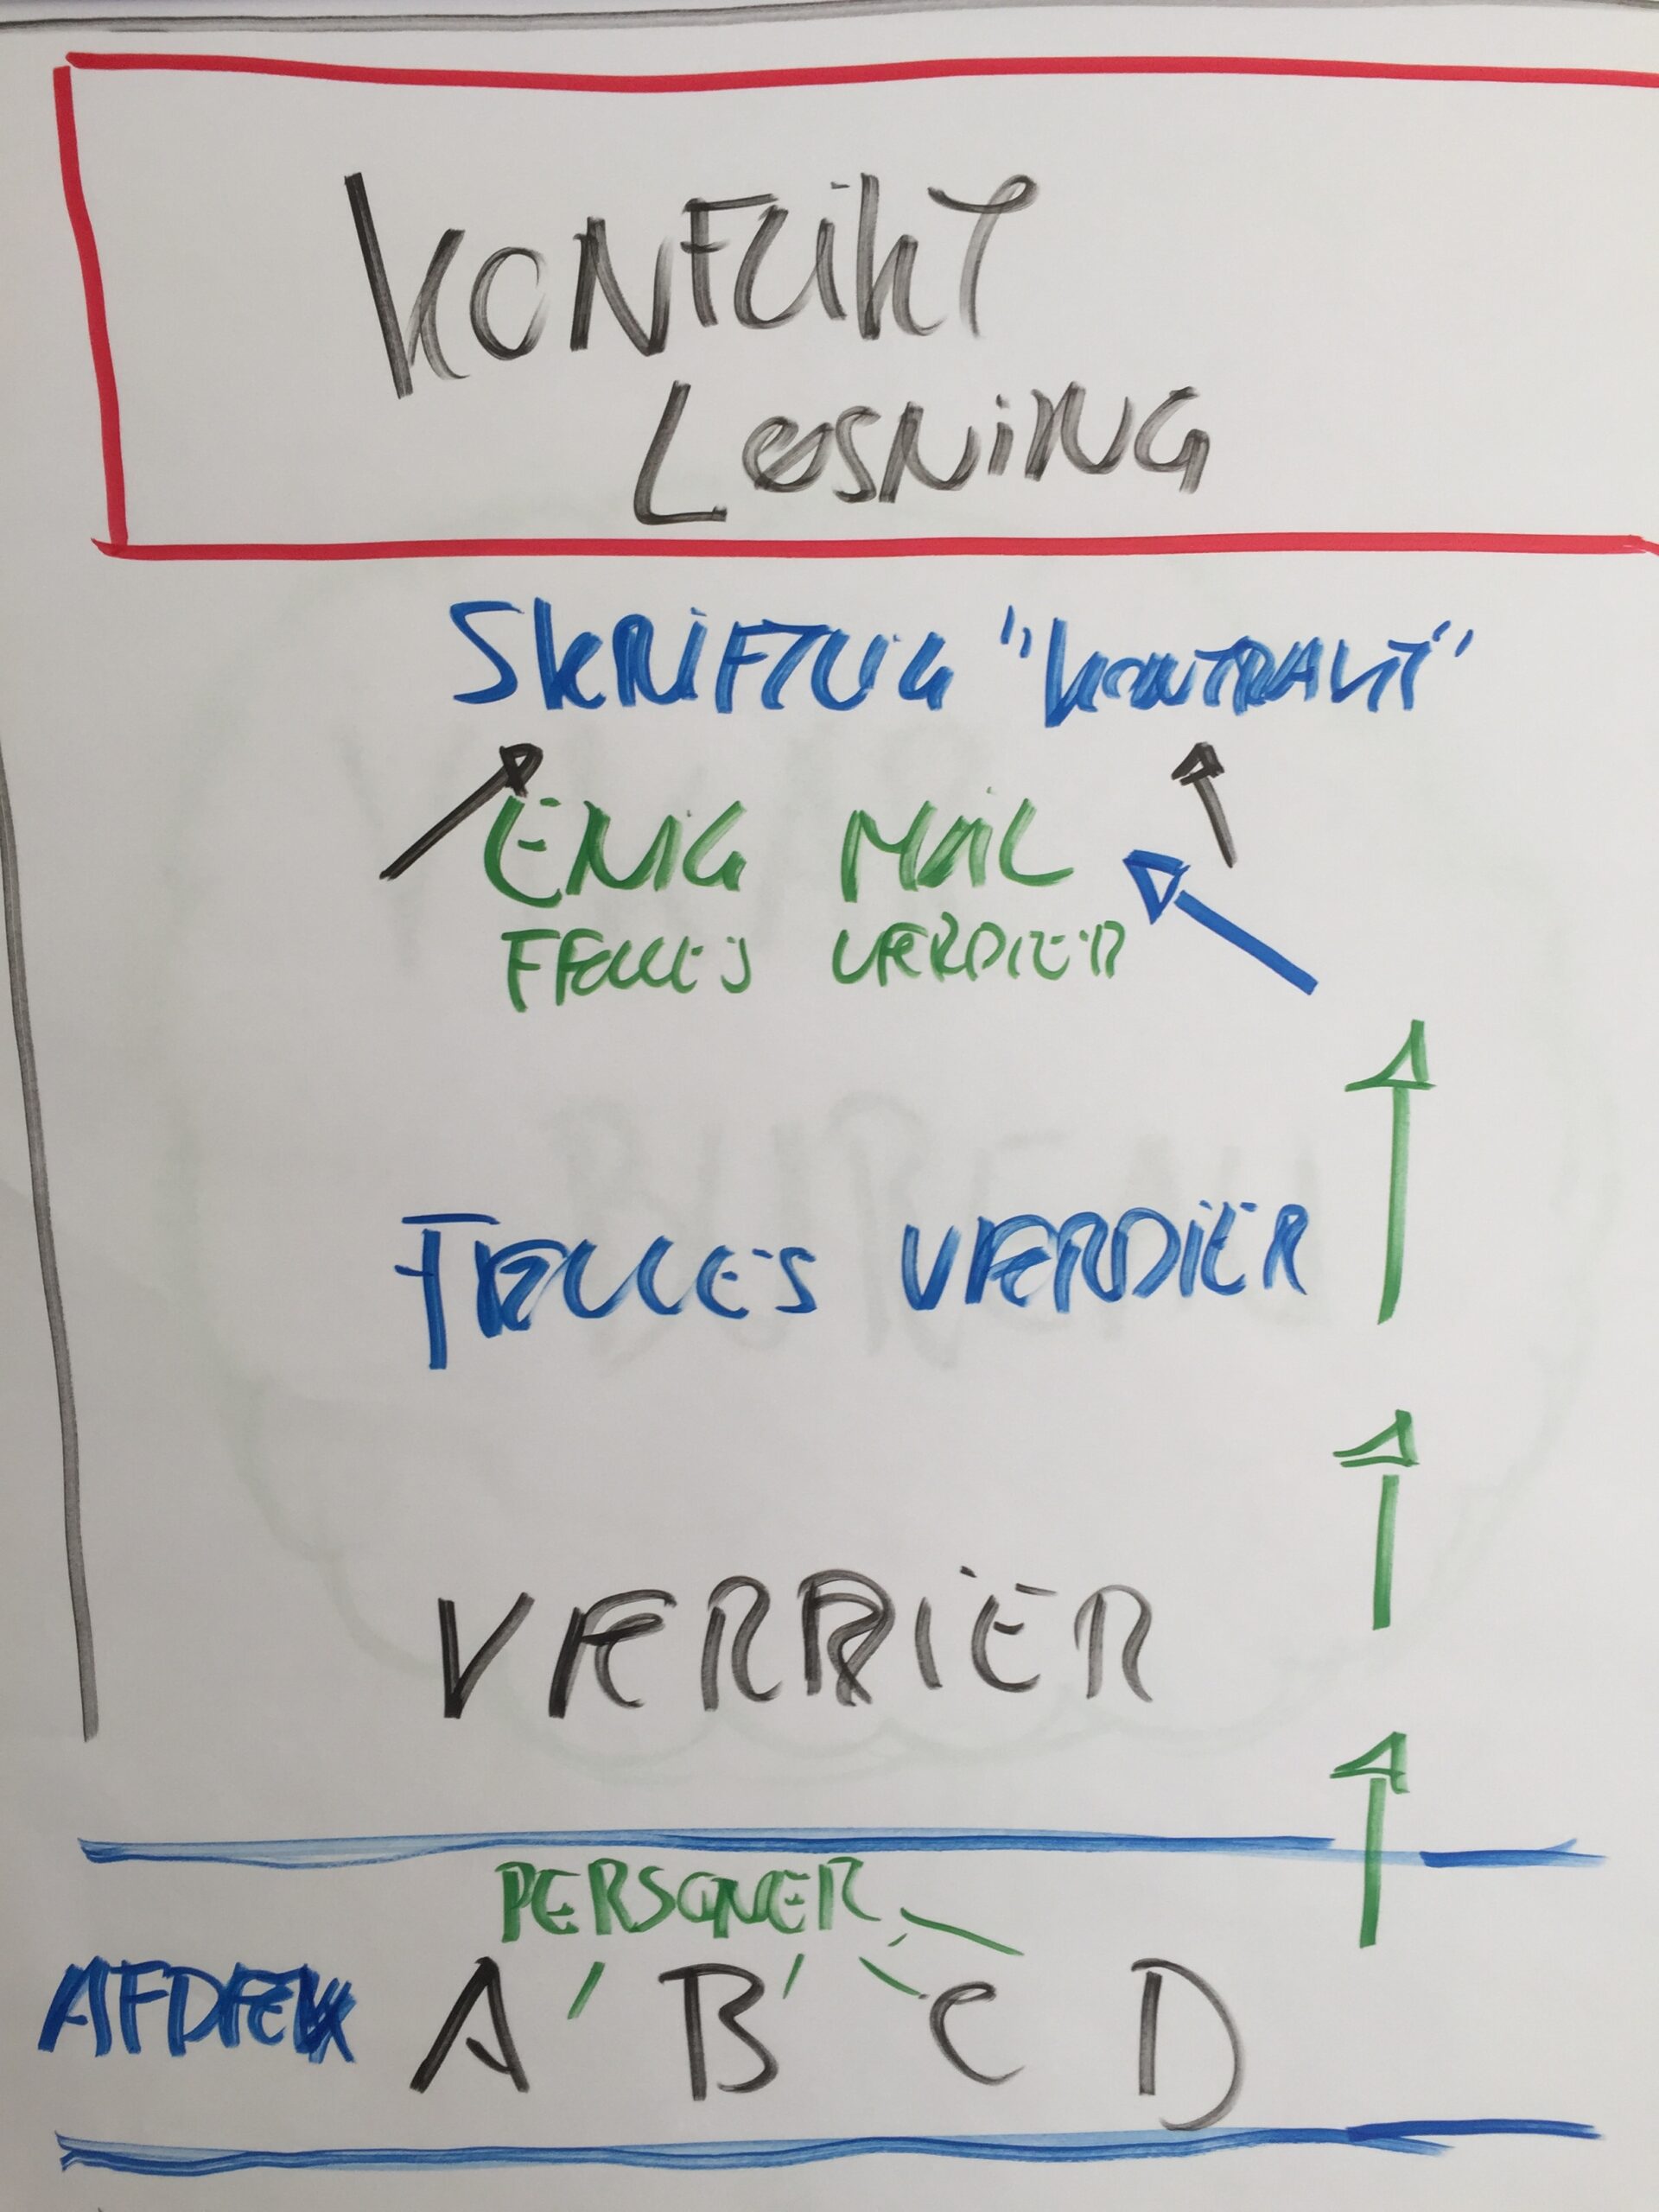 KONFLIKT
LØSNING
SKRIFTLIG "KONTRAKT"
ENIG MÅL
FÆLLES VÆRDIER
FÆLLES VÆRDIER
VÆRDIER
PERSONER
A B C D